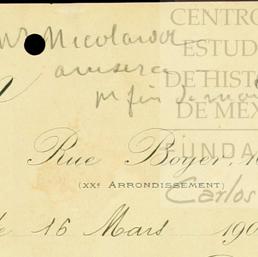 Mr Nicolauder
avisera
pr fin de mois
CENTRO
ESTUD
DE HISTO
DE MÉX
FUNDA
Carlos
Rue Boyer, 1
(XXe ARRONDISSEMENT)
le 16 Mars 190